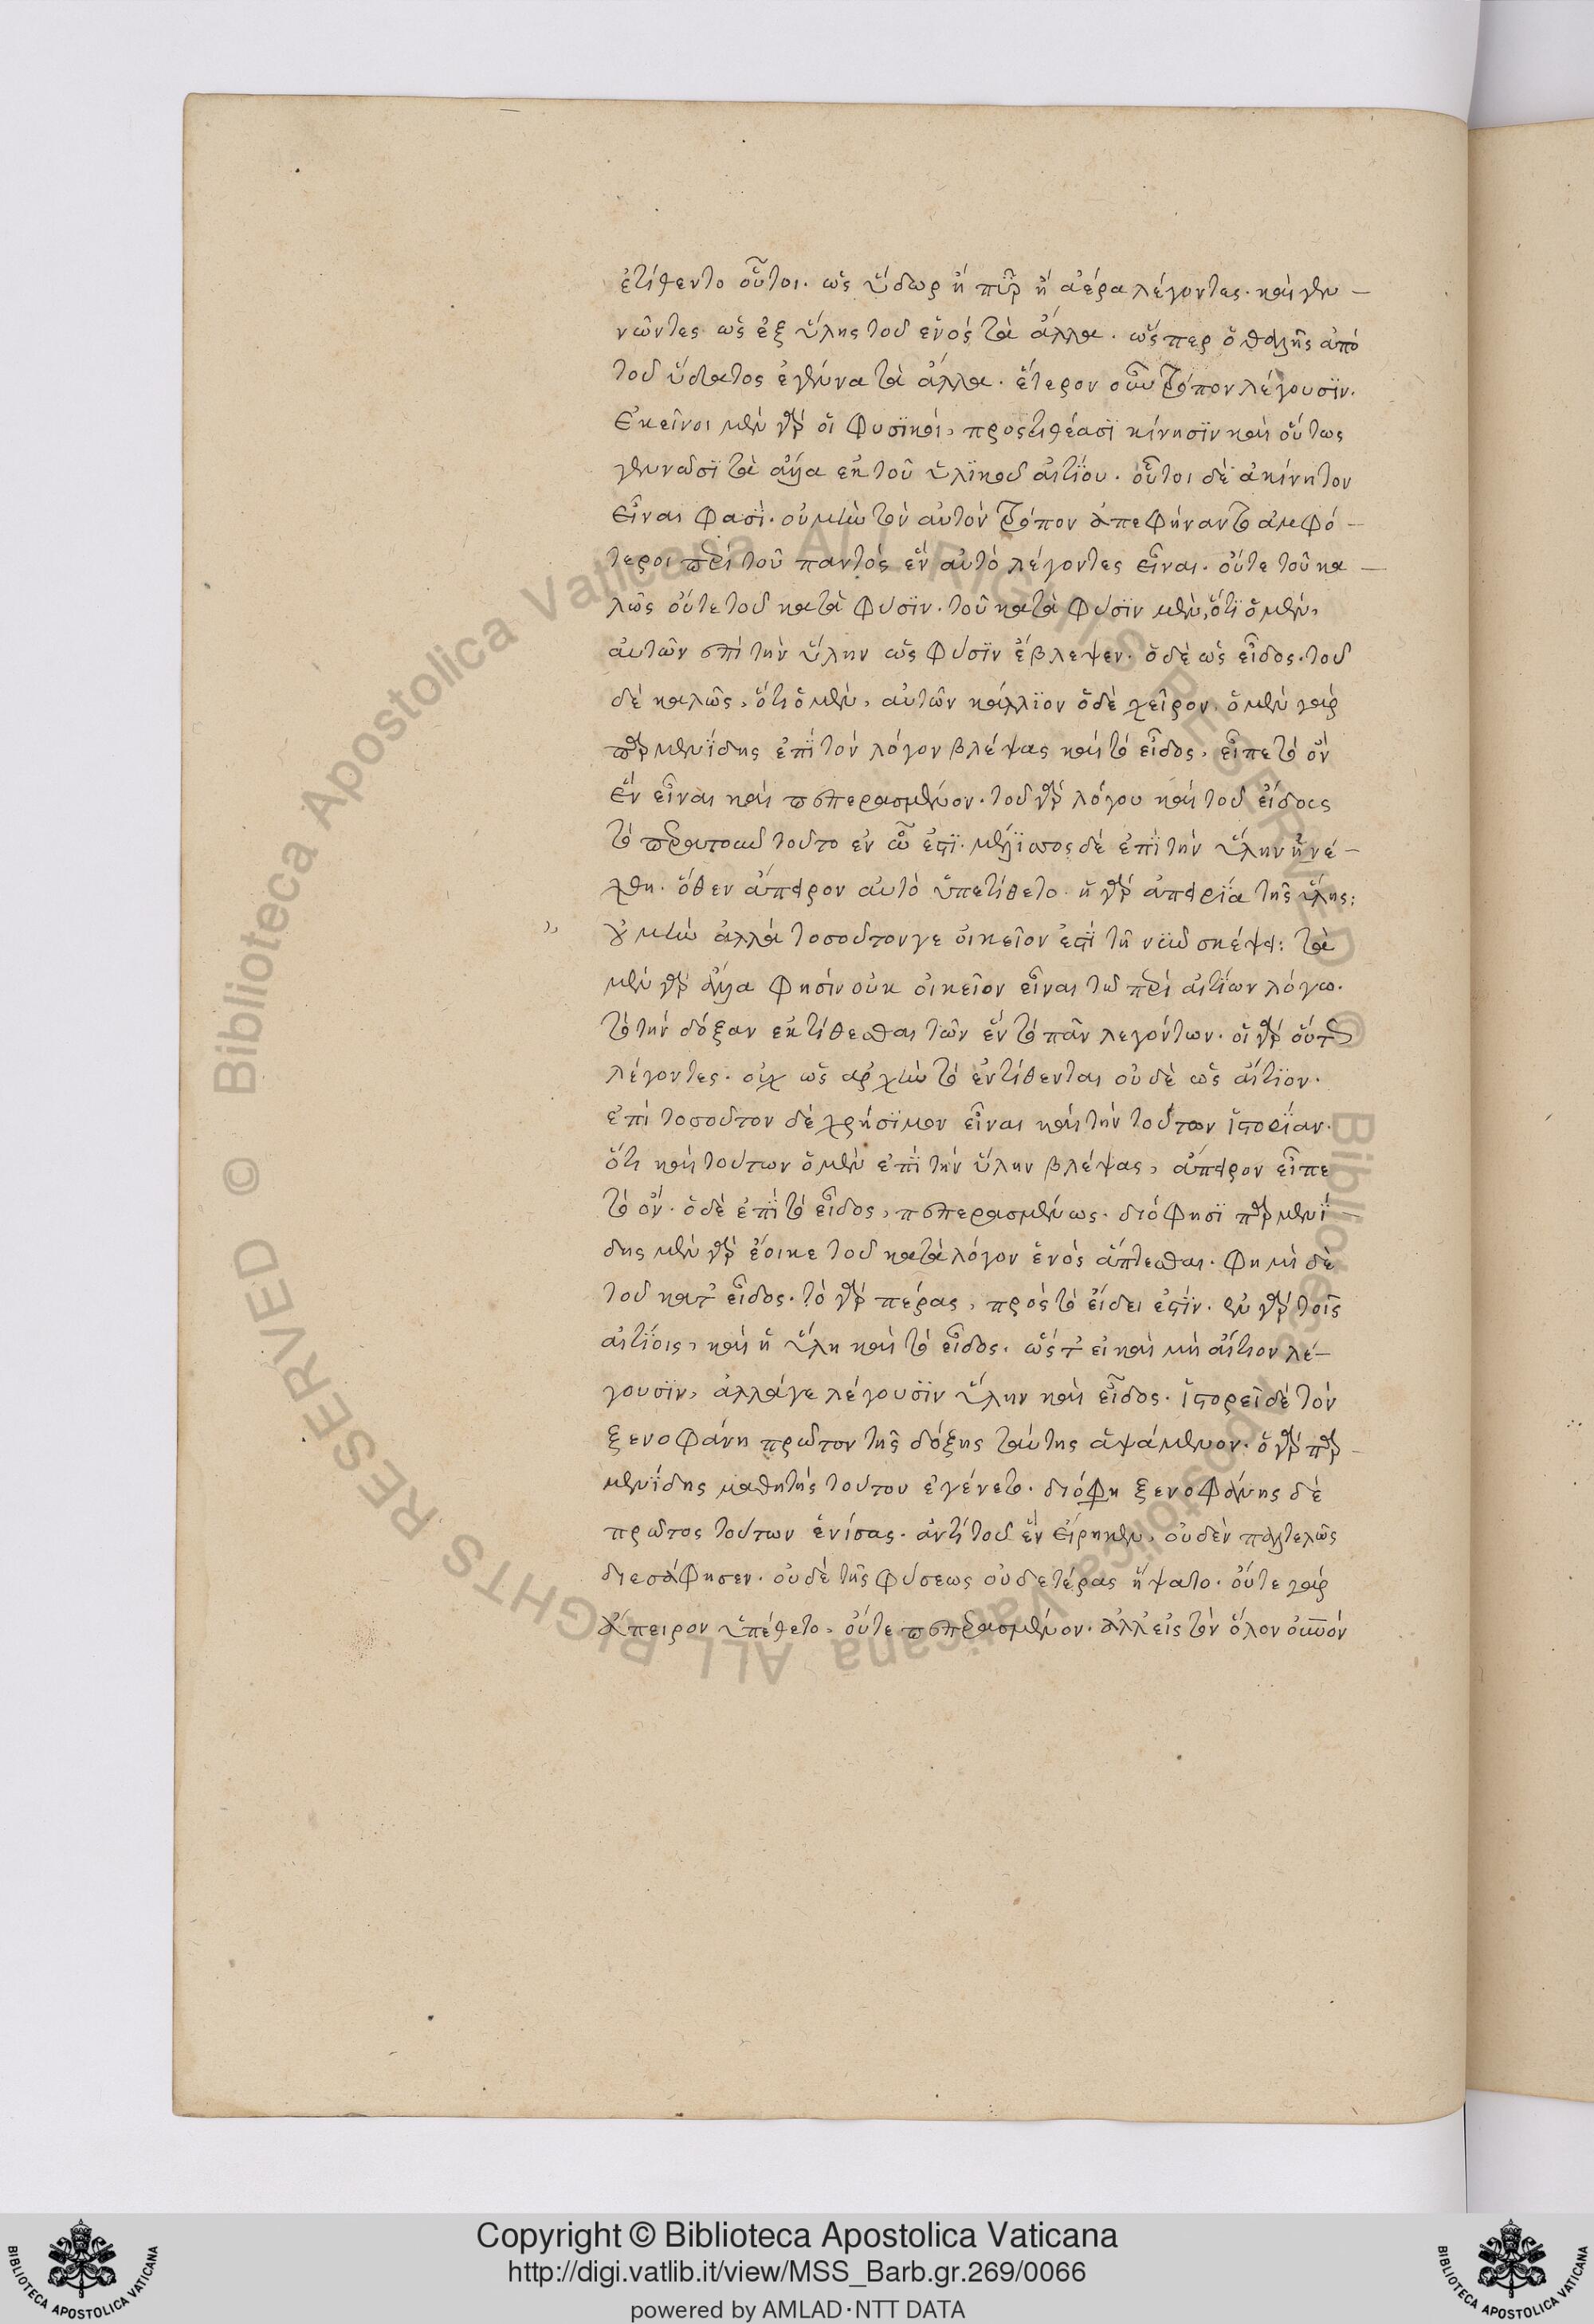 ἐτίθεντο οὗτοι. ὡς ὕδωρ ἢ πῦρ ἢ ἀέρα λέγοντες. καὶ γεν-
νῶντες ὡς ἐξ ὕλης τοῦ ἑνὸς τὰ ἄλλα. ὥσπερ ὁ θαλῆς ἀπὸ
τοῦ ὕδατος ἐγέννα τὰ ἄλλα. ἕτερον οὖν τρόπον λέγουσϊν.
Ἐκεῖνοι μὲν γὰρ οἱ φυσϊκοὶ, προςτιθέασϊ κίνησϊν καὶ οὕτως
γεννῶσϊ τὰ ἄλλα ἐκ τοῦ ὑλϊκοῦ αἰτίου. οὗτοι δὲ ἀκίνητον
εἶναι φασὶ. οὐ μὴν τὸν αὐτὸν τρόπον ἀπεφήναντο ἀμφό-
τεροι περὶ τοῦ παντὸς ἓν αὐτὸ λέγοντες εἶναι. οὔτε τοῦ κα-
λῶς οὔτε τοῦ κατὰ φύσϊν. τοῦ κατὰ φύσϊν μὲν, ὅτϊ ὁ μὲν,
αὐτῶν ἐπὶ τὴν ὕλην ὡς φύσϊν ἔβλεψεν. ὁ δὲ ὡς εἶδος. τοῦ
δὲ καλῶς, ὅτι ὁ μὲν, αὐτῶν κάλλϊον ὁ δὲ χεῖρον. ὁ μὲν γὰρ
παρμενίδης ἐπὶ τὸν λόγον βλέψας καὶ τὸ εἶδος, εἶπε τὸ ὂν
ἓν εἶναι καὶ πεπερασμένον. τοῦ γὰρ λόγου καὶ τοῦ εἴδους
τὸ περατοῦν τοῦτο ἐν ᾧ ἐστϊ. μέλϊσσος δὲ ἐπὶ τὴν ὕλην ἠνέ-
χθη. ὅθεν ἄπειρον αὐτὸ ὑπετίθετο. ἡ γὰρ ἀπειρία τῆς ὕλης:
οὐ μὴν ἀλλὰ τοσοῦτον γε οἰκεῖον ἐστὶ τῇ νῦν σκέψει: τὰ
μὲν γὰρ ἄλλα φησὶν οὐκ οἰκεῖον εἶναι τῶ περὶ αἰτίων λόγω.
τὸ τὴν δόξαν ἐκτίθεσθαι τῶν ἓν τὸ πᾶν λεγόντων. οἱ γὰρ οὕτως
λέγοντες. οὐχ ὡς ἀρχὴν τὸ ἓν τίθενται οὐδὲ ὡς αἴτϊον.
ἐπὶ τοσοῦτον δὲ χρήσϊμον εἶναι καὶ τὴν τούτων ἱστορίαν.
ὅτι καὶ τούτων ὁ μὲν ἐπὶ τὴν ὕλην βλέψας, ἄπειρον εἶπε
τὸ ὄν. ὁ δὲ ἐπὶ τὸ εἶδος, πεπερασμένως. διό φησϊ παρμενί-
δης μὲν γὰρ ἔοικε τοῦ κατὰ λόγον ἑνὸς ἅπτεσθαι. φημὶ δὲ
τοῦ κατ' εἶδος. τὸ γὰρ πέρας, πρὸς τὸ εἴδει ἐστίν. ἐν γὰρ τοῖς
αἰτίοις, καὶ ἡ ὕλη καὶ τὸ εἶδος. ὥστ' εἰ καὶ μὴ αἴτιον λέ-
γουσϊν, ἀλλάγε λέγουσϊν ὕλην καὶ εἶδος. ἱστορεῖ δὲ τὸν
ξενοφάνη πρῶτον τῆς δόξης ταύτης ἁψάμενον. ὁ γὰρ παρ-
μενίδης μαθητὴς τούτου ἐγένετο. διό φη ξενοφάνης δὲ
πρῶτος τούτων ἑνίσας. ἀντὶ τοῦ ἓν εἰρηκεν, οὐδὲν παντελῶς
διεσάφησεν. οὐδὲ τῆς φύσεως οὐδετέρας ἥψατο. οὔτε γὰρ
ἄπειρον ὑπέθετο, οὔτε πεπερασμένον. ἀλλ' εἰς τὸν ὅλον οὐνὸν